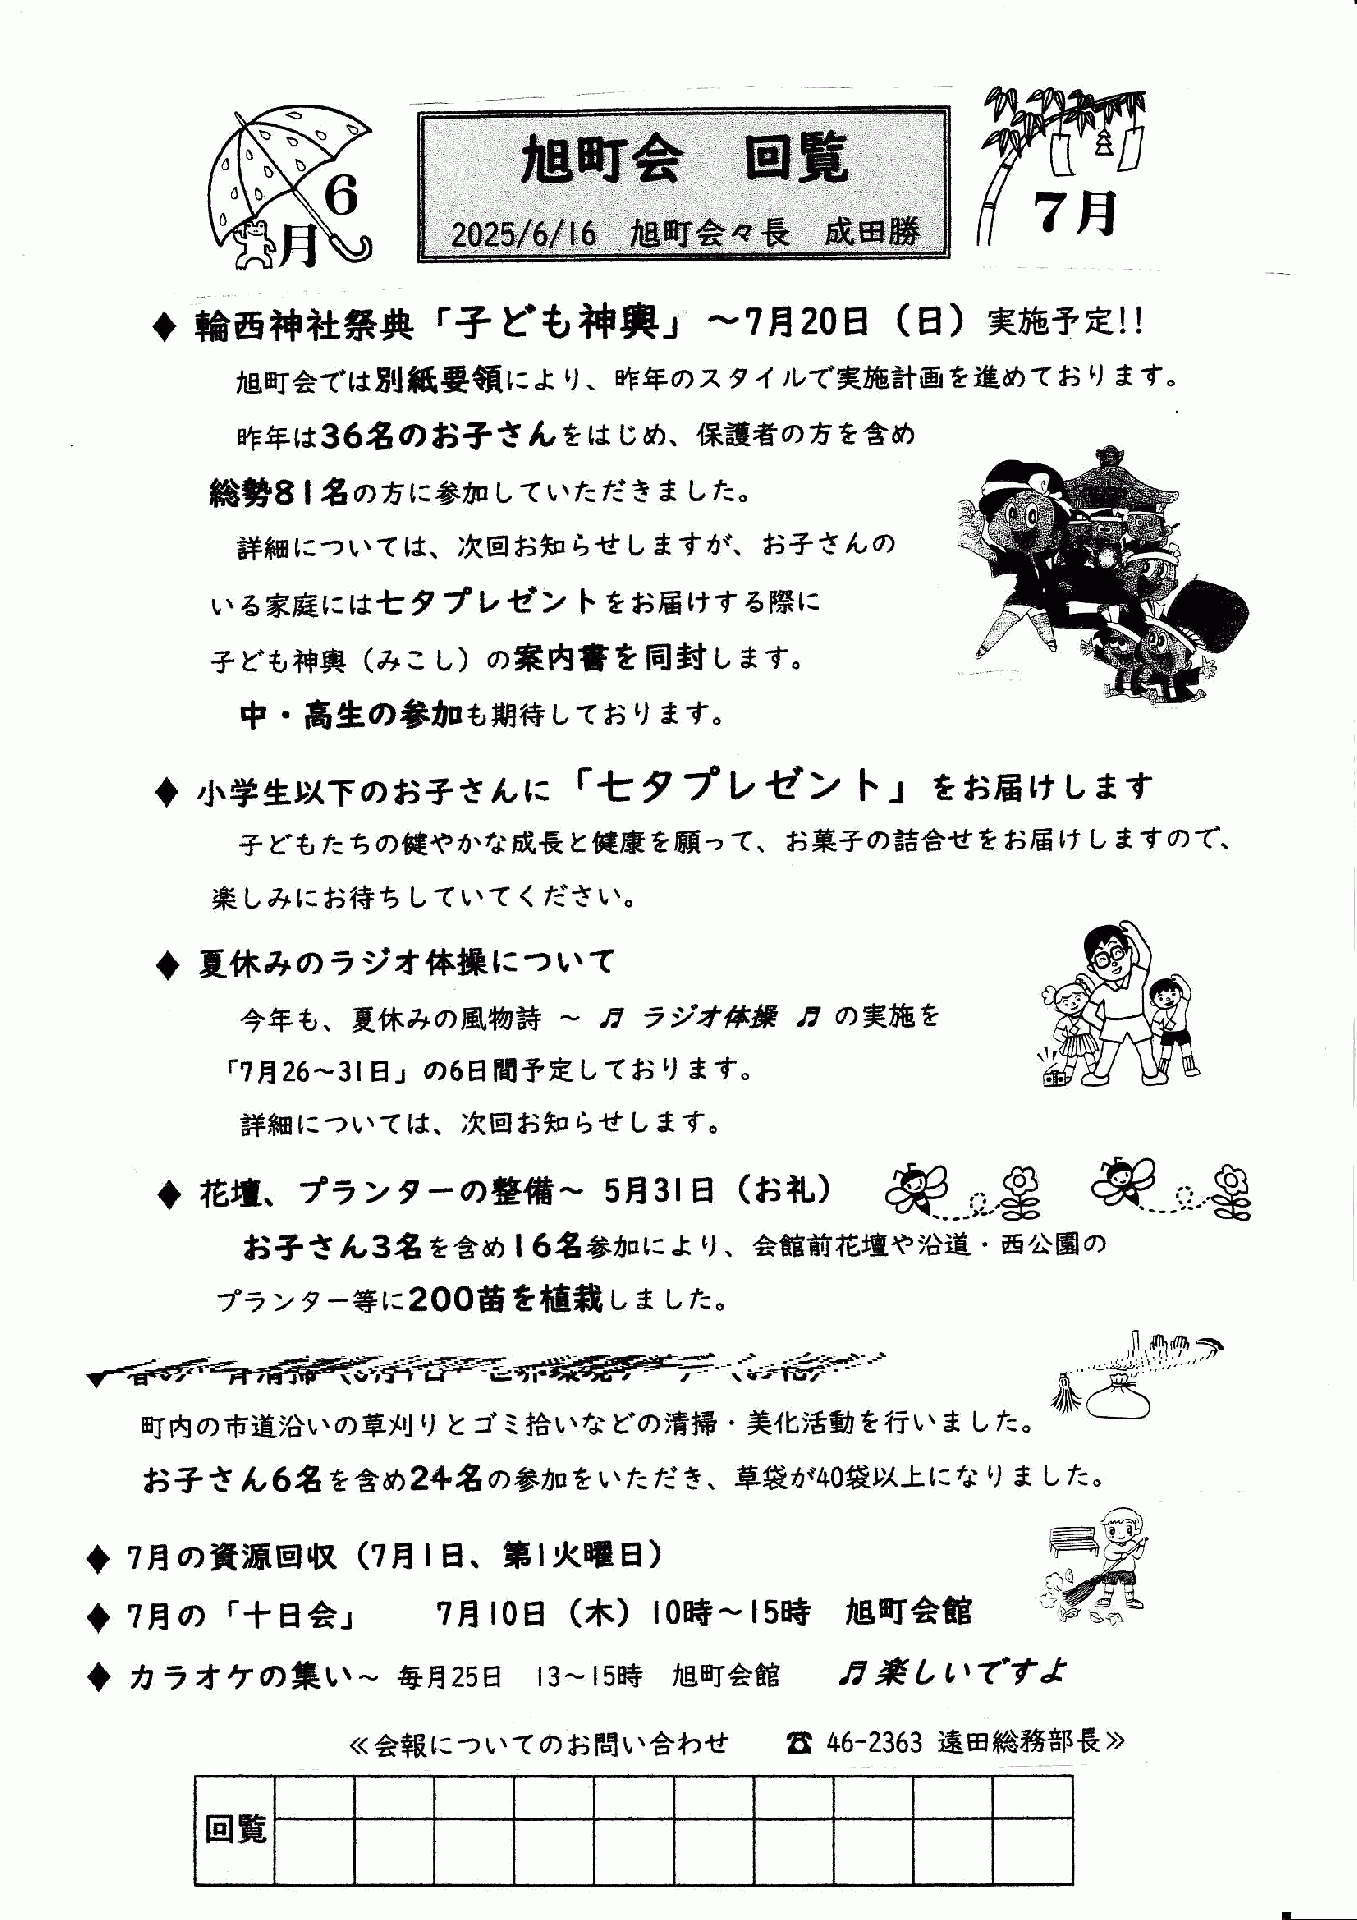 6月
旭町会　回覧
2025/6/16　旭町会々長　成田勝
7月
◆ 輪西神社祭典「子ども神輿」～7月20日（日）実施予定!!
旭町会では別紙要領により、昨年のスタイルで実施計画を進めております。
昨年は36名のお子さんをはじめ、保護者の方を含め
総勢81名の方に参加していただきました。
詳細については、次回お知らせしますが、お子さんの
いる家庭には七夕プレゼントをお届けする際に
子ども神輿（みこし）の案内書を同封します。
中・高生の参加も期待しております。
◆ 小学生以下のお子さんに「七夕プレゼント」をお届けします
子どもたちの健やかな成長と健康を願って、お菓子の詰合せをお届けしますので、
楽しみにお待ちしていてください。
◆ 夏休みのラジオ体操について
今年も、夏休みの風物詩 ～ ♬ ラジオ体操 ♬ の実施を
「7月26～31日」の6日間予定しております。
詳細については、次回お知らせします。
◆ 花壇、プランターの整備～ 5月31日（お礼）
お子さん3名を含め16名参加により、会館前花壇や沿道・西公園の
プランター等に200苗を植栽しました。
町内の市道沿いの草刈りとゴミ拾いなどの清掃・美化活動を行いました。
お子さん6名を含め24名の参加をいただき、草袋が40袋以上になりました。
◆ 7月の資源回収（7月1日、第1火曜日）
◆ 7月の「十日会」　7月10日（木）10時～15時　旭町会館
◆ カラオケの集い～ 毎月25日　13～15時　旭町会館　♬楽しいですよ
≪会報についてのお問い合わせ　☎ 46-2363 遠田総務部長≫
回覧